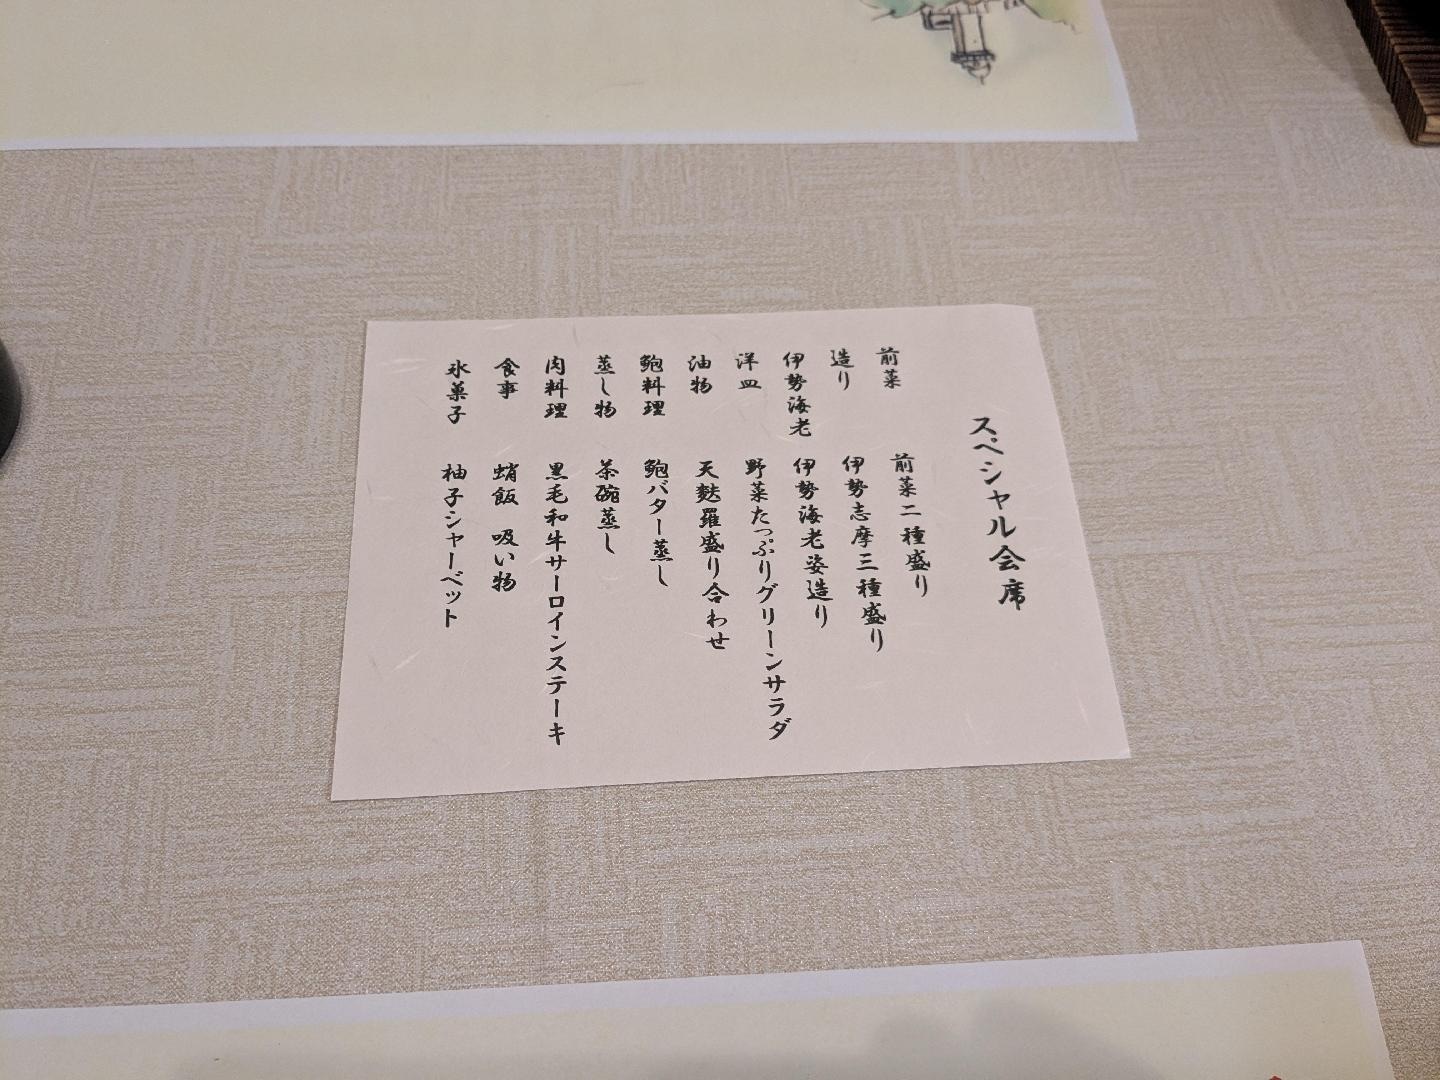 スペシャル会席
前菜 前菜二種盛り
造り 伊勢志摩三種盛り
伊勢海老 伊勢海老姿造り
洋皿 野菜たっぷりグリーンサラダ
油物 天麩羅盛り合わせ
鮑料理 鮑バター蒸し
蒸し物 茶碗蒸し
肉料理 黒毛和牛サーロインステーキ
食事 蛸飯 吸い物
氷菓子 柚子シャーベット